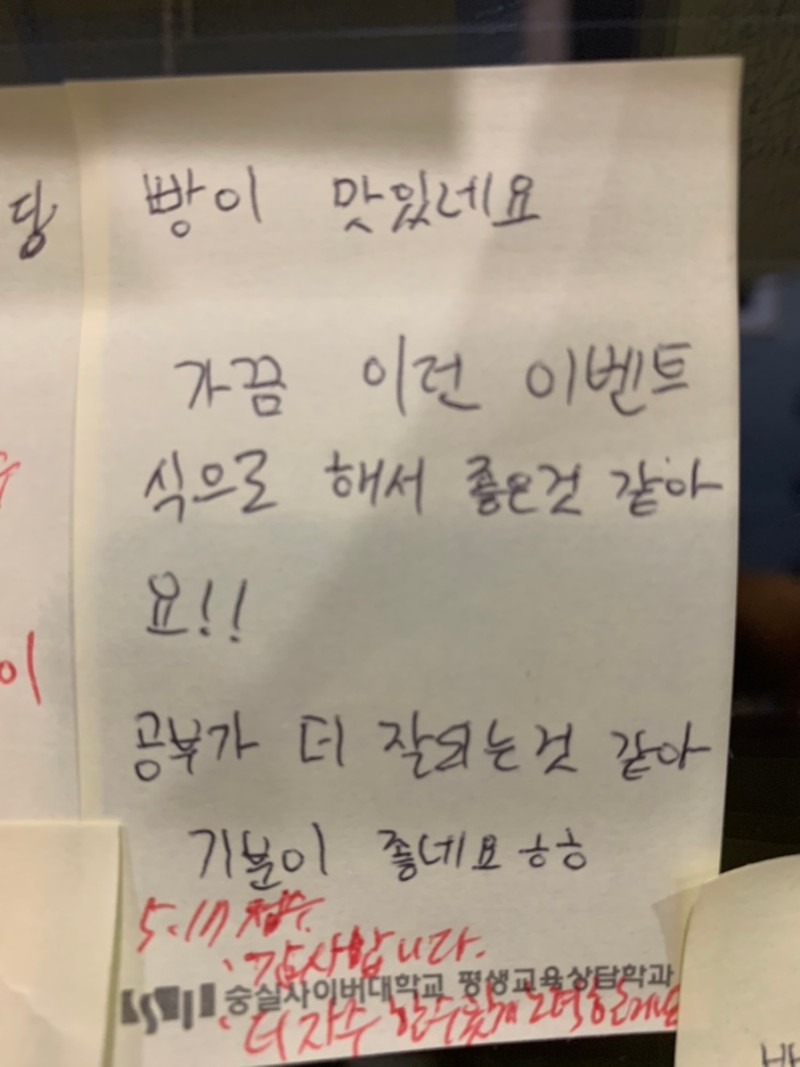 빵이 맛있네요
가끔 이런 이벤트
식으로 해서 좋은것 같아
요!!
공부가 더 잘되는것 같아
기분이 좋네요 ㅎㅎ
5.17 접수
감사합니다.
숭실사이버대학교 평생교육상담학과
더 자주 할 수 있게
당
이